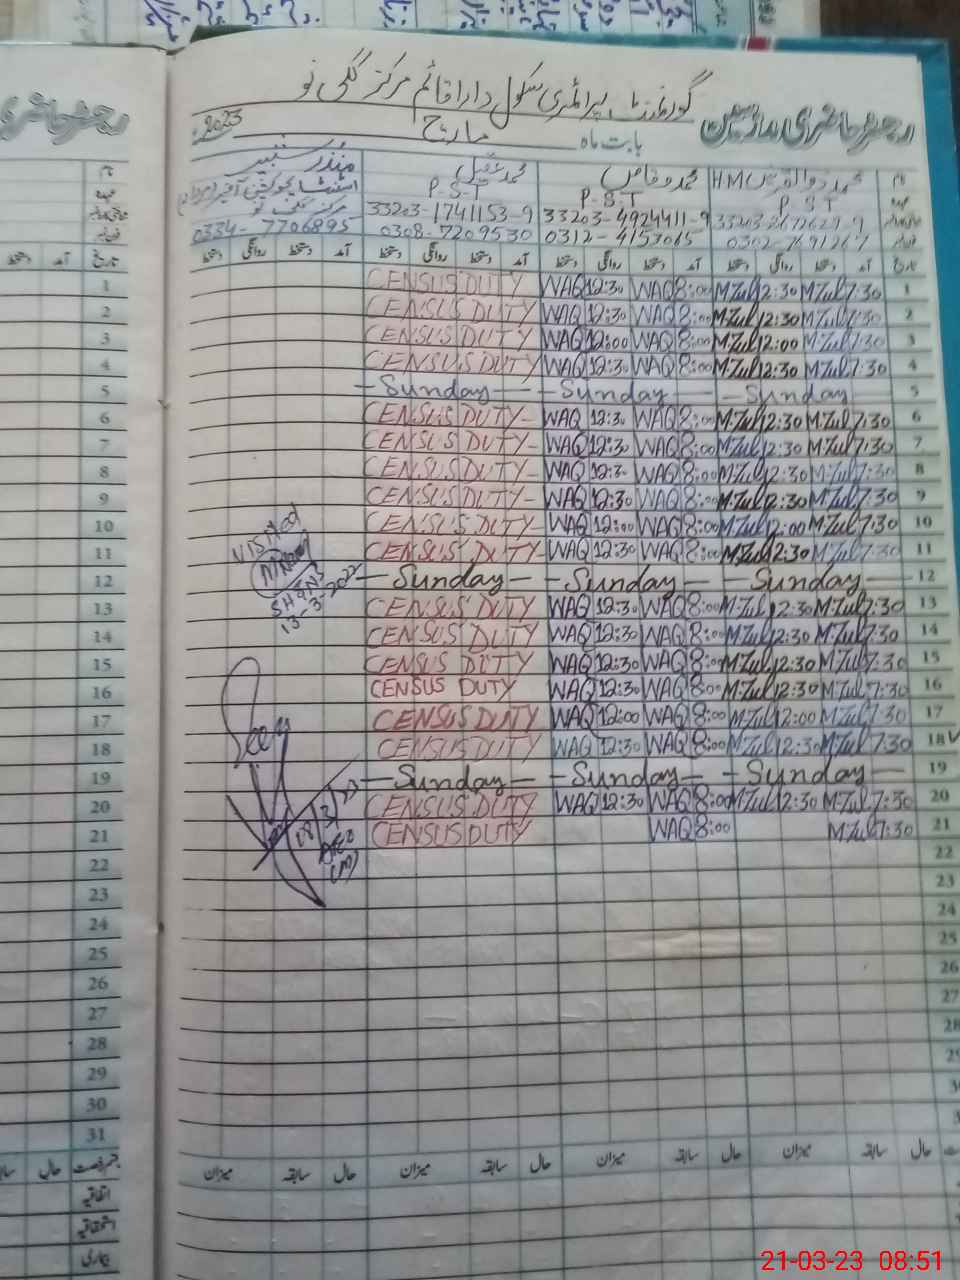 گورنمنٹ پرائمری سکول دارا قائم مرکز گلی نو
رجسٹر حاضری مدرسین
بابت ماہ مارچ 2023ء
نام محمد ذوالقرنین HM محمد وقاص محمد عقیل
P S T P.S.T P.S.T
33203-4924411-9 33203-1741153-9
0312-4153065 0308-7209530 0334-7706895
تاریخ آمد دستخط روانگی دستخط آمد دستخط روانگی دستخط آمد دستخط روانگی دستخط آمد دستخط روانگی دستخط
1 CENSUS DUTY WAQ 12:30 WAQ 8:00 M.Zul 12:30 M.Zul 7:30 1
2 CENSUS DUTY WAQ 12:30 WAQ 8:00 M.Zul 12:30 M.Zul 7:30 2
3 CENSUS DUTY WAQ 12:00 WAQ 8:00 M.Zul 12:00 M.Zul 7:30 3
4 CENSUS DUTY WAQ 12:30 WAQ 8:00 M.Zul 12:30 M.Zul 7:30 4
5 -Sunday- -Sunday- -Sunday 5
6 CENSUS DUTY- WAQ 12:30 WAQ 8:00 M.Zul 12:30 M.Zul 7:30 6
7 CENSUS DUTY- WAQ 12:30 WAQ 8:00 M.Zul 12:30 M.Zul 7:30 7
8 CENSUS DUTY- WAQ 12:30 WAQ 8:00 M.Zul 12:30 M.Zul 7:30 8
9 CENSUS DUTY- WAQ 12:30 WAQ 8:00 M.Zul 12:30 M.Zul 7:30 9
10 CENSUS DUTY- WAQ 12:00 WAQ 8:00 M.Zul 12:00 M.Zul 7:30 10
11 CENSUS DUTY- WAQ 12:30 WAQ 8:00 M.Zul 12:30 M.Zul 7:30 11
12 -Sunday- -Sunday- -Sunday- 12
13 CENSUS DUTY WAQ 12:30 WAQ 8:00 M.Zul 12:30 M.Zul 7:30 13
14 CENSUS DUTY WAQ 12:30 WAQ 8:00 M.Zul 12:30 M.Zul 7:30 14
15 CENSUS DUTY WAQ 12:30 WAQ 8:00 M.Zul 12:30 M.Zul 7:30 15
16 CENSUS DUTY WAQ 12:30 WAQ 8:00 M.Zul 12:30 M.Zul 7:30 16
17 CENSUS DUTY WAQ 12:00 WAQ 8:00 M.Zul 12:00 M.Zul 7:30 17
18 CENSUS DUTY WAQ 12:30 WAQ 8:00 M.Zul 12:30 M.Zul 7:30 18
19 -Sunday- -Sunday- -Sunday- 19
20 CENSUS DUTY WAQ 12:30 WAQ 8:00 M.Zul 12:30 M.Zul 7:30 20
21 CENSUS DUTY WAQ 8:00 M.Zul 7:30 21
22 22
23 23
24 24
25 25
26 26
27 27
28 28
29
30
31
VISITED
13-3-2022
Seen
18/3/23
میزان سابقہ حال میزان سابقہ حال میزان سابقہ حال میزان سابقہ حال
اتفاقیہ
استحقاقیہ
بیماری
21-03-23 08:51